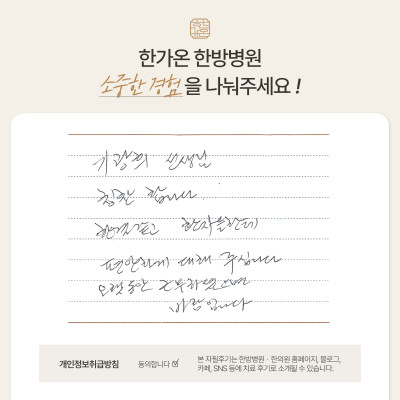 한가온 한방병원
소중한 경험을 나눠주세요!
기광희 선생님
칭찬 합니다.
한결같고 환자들한테
편안하게 대해 주십니다
오랫동안 근무하셨으면
바람입니다
개인정보취급방침 동의합니다
본 자필후기는 한방병원 · 한의원 홈페이지, 블로그,
카페, SNS 등에 치료 후기로 소개될 수 있습니다.